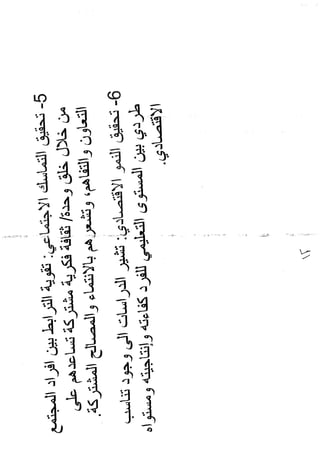 5- تحقيق التماسك الاجتماعي: تقوية الترابط بين افراد المجتمع
من خلال خلق وحدة/ ثقافة فكرية مشتركة تساعدهم على
التعاون والتفاهم، وتشعرهم بالانتماء والمصالح المشتركة.
6- تحقيق النمو الاقتصادي: تشير الدراسات الى وجود تناسب
طردي بين المستوى التعليمي للفرد كفاءته وإنتاجيته ومستواه
الاقتصادي.
١٢